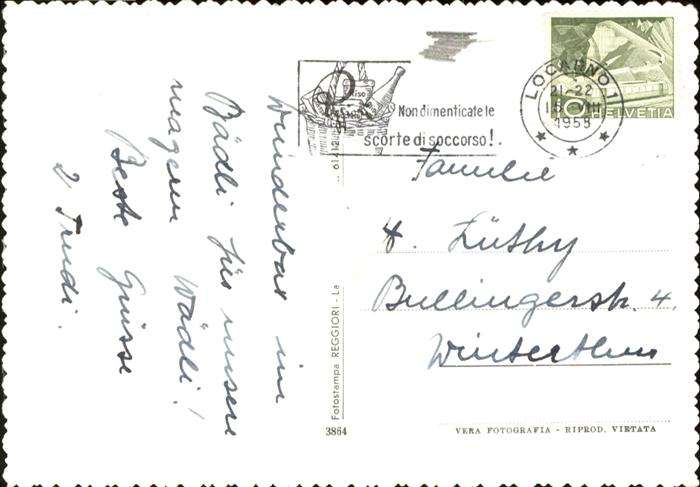 Wunderbar im
Bädli für unsere
magern Wädli!
Beste Grüsse
2 Trudi.
Non dimenticate le
scorte di soccorso!
LOCARNO 1
21-22
18 VIII
1958
10 HELVETIA
Familie
H. Lüthy
Bullingerstr. 4.
Winterthur
Fotostampa REGGIORI - La
3864
VERA FOTOGRAFIA - RIPROD. VIETATA